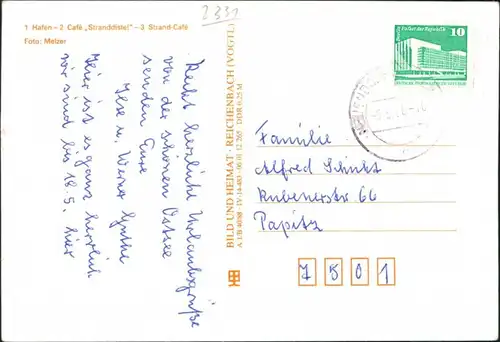 2331
1 Hafen – 2 Café „Stranddistel" – 3 Strand-Café
Foto: Melzer
Recht herzliche Urlaubsgrüße
von der schönen Ostsee
senden Eure
Ilse u. Werner
Hier ist es ganz herrlich
wir sind bis 18.5. hier
BILD UND HEIMAT · REICHENBACH (VOGTL)
A 1/B 40/88 · IV-14-483 · 06 01 12 265 DDR 0,25 M
10
Palast der Republik
DEUTSCHE DEMOKRATISCHE REPUBLIK
Familie
Alfred
Rubenerstr 66
Papitz
7501